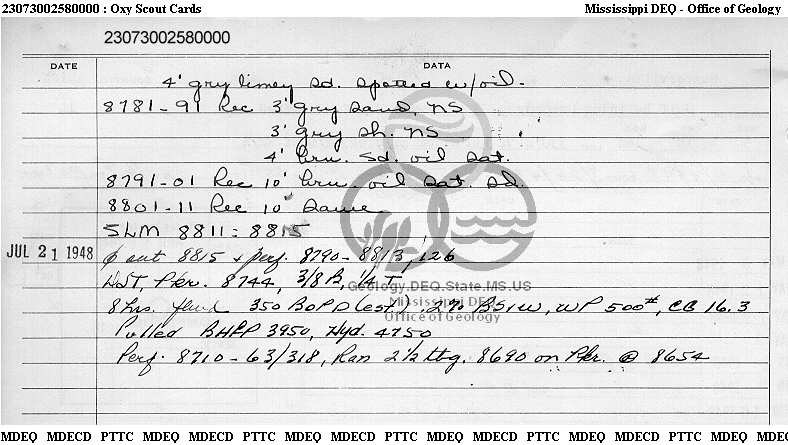 23073002580000 : Oxy Scout Cards
Mississippi DEQ - Office of Geology
23073002580000
DATE
DATA
4' gry limey sd. spotted w/oil -
8781-91 Rec 3' gry sand, NS
3' gry sh. NS
4' brn. sd. oil sat.
8791-01 Rec 10' brn. oil sat. sd.
8801-11 Rec 10' same
SLM 8811 = 8815
JUL 21 1948
out 8815 + perf. 8790-8813, 126
DST, Pkr. 8744, 3/8 B, 1/4 T,
8 hrs. flowed 350 BOPD (est) .2% BS&W, WP 500#, CB 16.3
Pulled BHFP 3950, Hyd. 4750
Perf. 8710-63/318, Ran 2 1/2 tbg. 8690 on Pkr. @ 8654
Geology.DEQ.State.MS.US
Mississippi DEQ
Office of Geology
MDEQ MDECD PTTC MDEQ MDECD PTTC MDEQ MDECD PTTC MDEQ MDECD PTTC MDEQ MDECD PTTC MDEQ MDEC